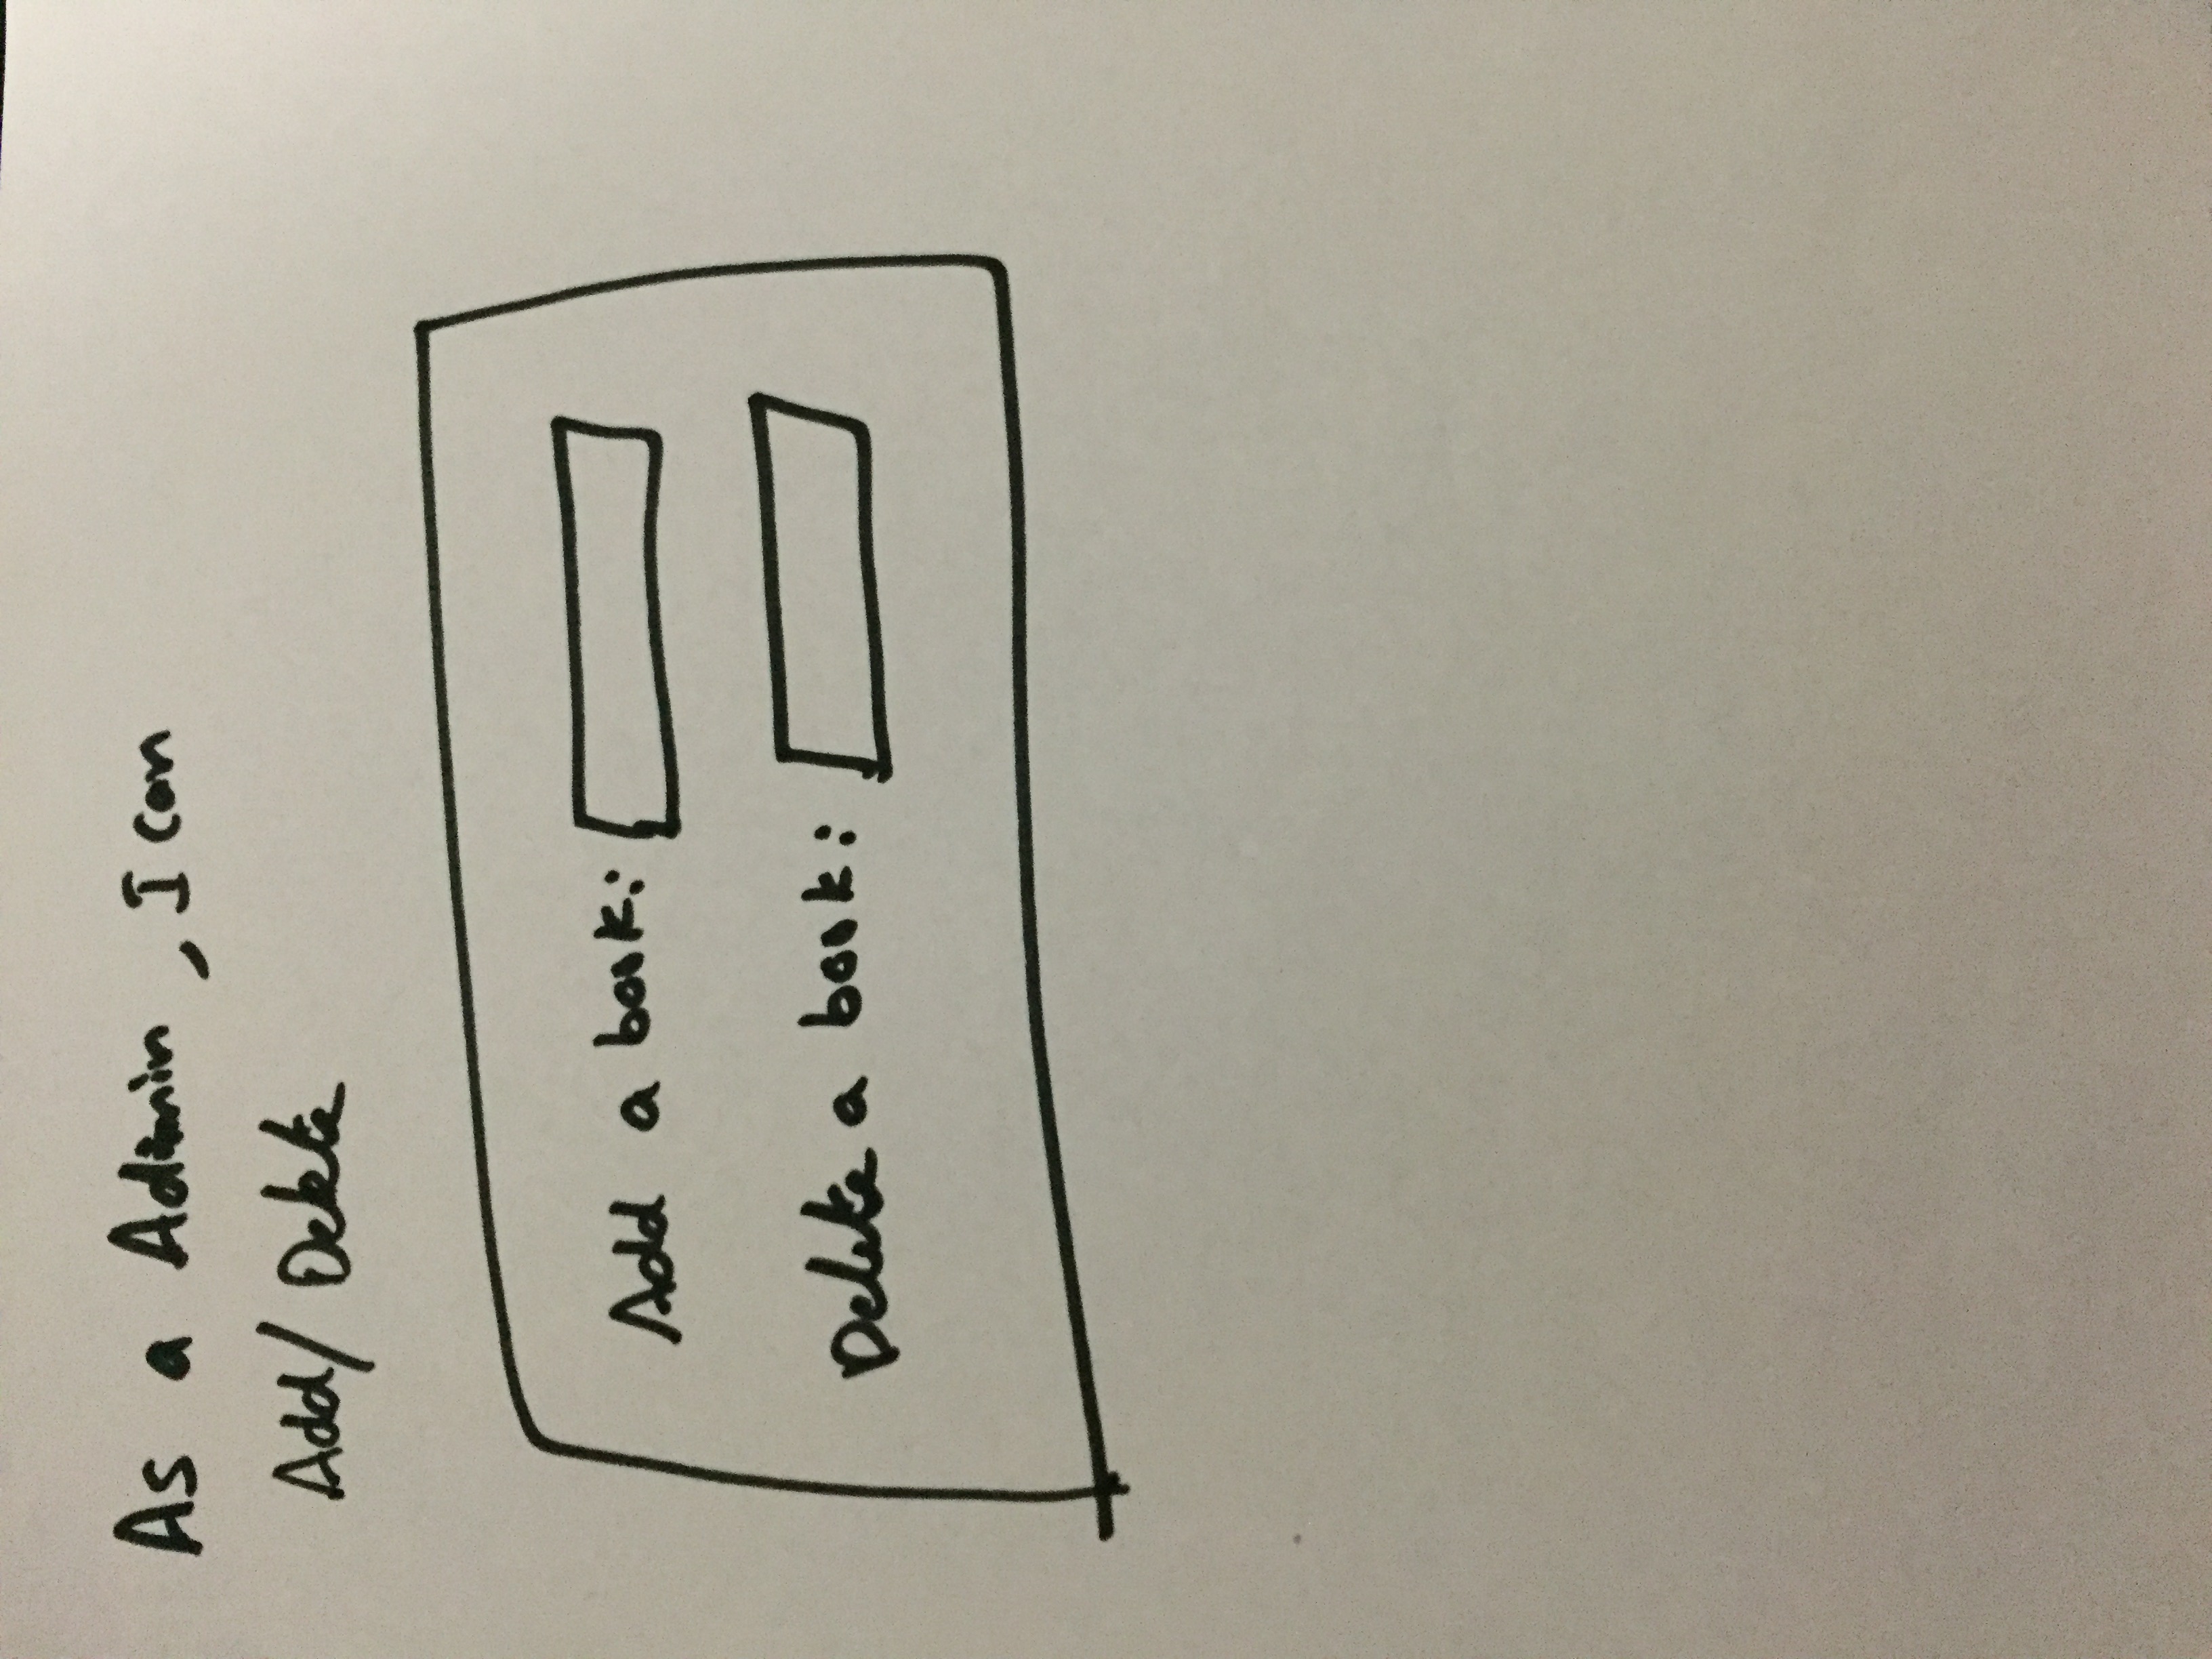 As a Admin, I can
Add/ Delete
Add a book:
Delete a book: